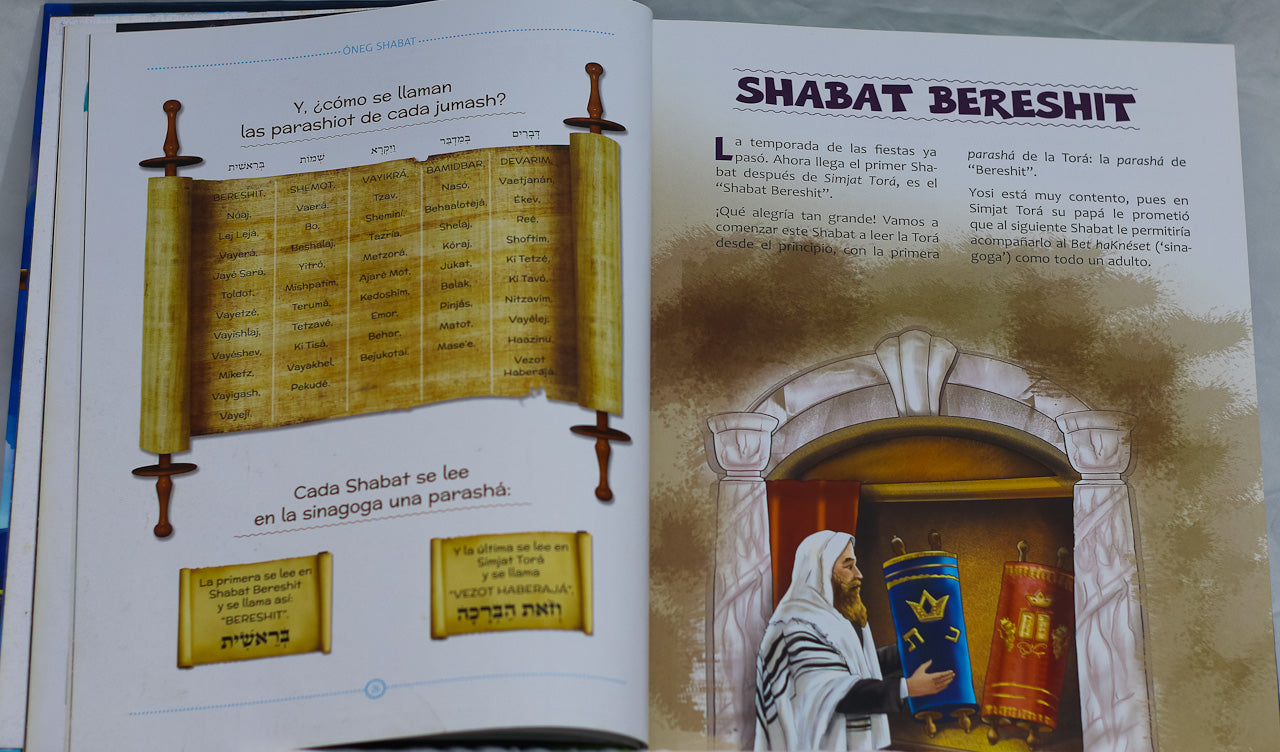 ÓNEG SHABAT
Y, ¿cómo se llaman
las parashiot de cada jumash?
בְּרֵאשִׁית
BERESHIT,
Nóaj,
Lej Lejá,
Vayerá,
Jayé Sará,
Toldot,
Vayetzé,
Vayishlaj,
Vayéshev,
Miketz,
Vayigash,
Vayejí,
שְׁמוֹת
SHEMOT,
Vaerá,
Bo,
Beshalaj,
Yitró,
Mishpatim,
Terumá,
Tetzavé,
Ki Tisá,
Vayakhel,
Pekudé,
וַיִּקְרָא
VAYIKRÁ,
Tzav,
Sheminí,
Tazría,
Metzorá,
Ajaré Mot,
Kedoshim,
Emor,
Behar,
Bejukotai,
בְּמִדְבַּר
BAMIDBAR,
Nasó,
Behaalotejá,
Shelaj,
Kóraj,
Jukat,
Balak,
Pinjás,
Matot,
Mas'e'e,
דְּבָרִים
DEVARIM,
Vaetjanán,
Ékev,
Reé,
Shoftim,
Ki Tetzé,
Ki Tavó,
Nitzavim,
Vayélej,
Haazinu,
Vezot
Haberajá,
Cada Shabat se lee
en la sinagoga una parashá:
La primera se lee en
Shabat Bereshit
y se llama así:
"BERESHIT",
בְּרֵאשִׁית
Y la última se lee en
Simjat Torá
y se llama
"VEZOT HABERAJÁ",
וְזֹאת הַבְּרָכָה
26
SHABAT BERESHIT
La temporada de las fiestas ya
pasó. Ahora llega el primer Sha-
bat después de Simjat Torá, es el
"Shabat Bereshit".
¡Qué alegría tan grande! Vamos a
comenzar este Shabat a leer la Torá
desde el principio, con la primera
parashá de la Torá: la parashá de
"Bereshit".
Yosi está muy contento, pues en
Simjat Torá su papá le prometió
que al siguiente Shabat le permitiría
acompañarlo al Bet haKnéset ('sina-
goga') como todo un adulto.
כ ת